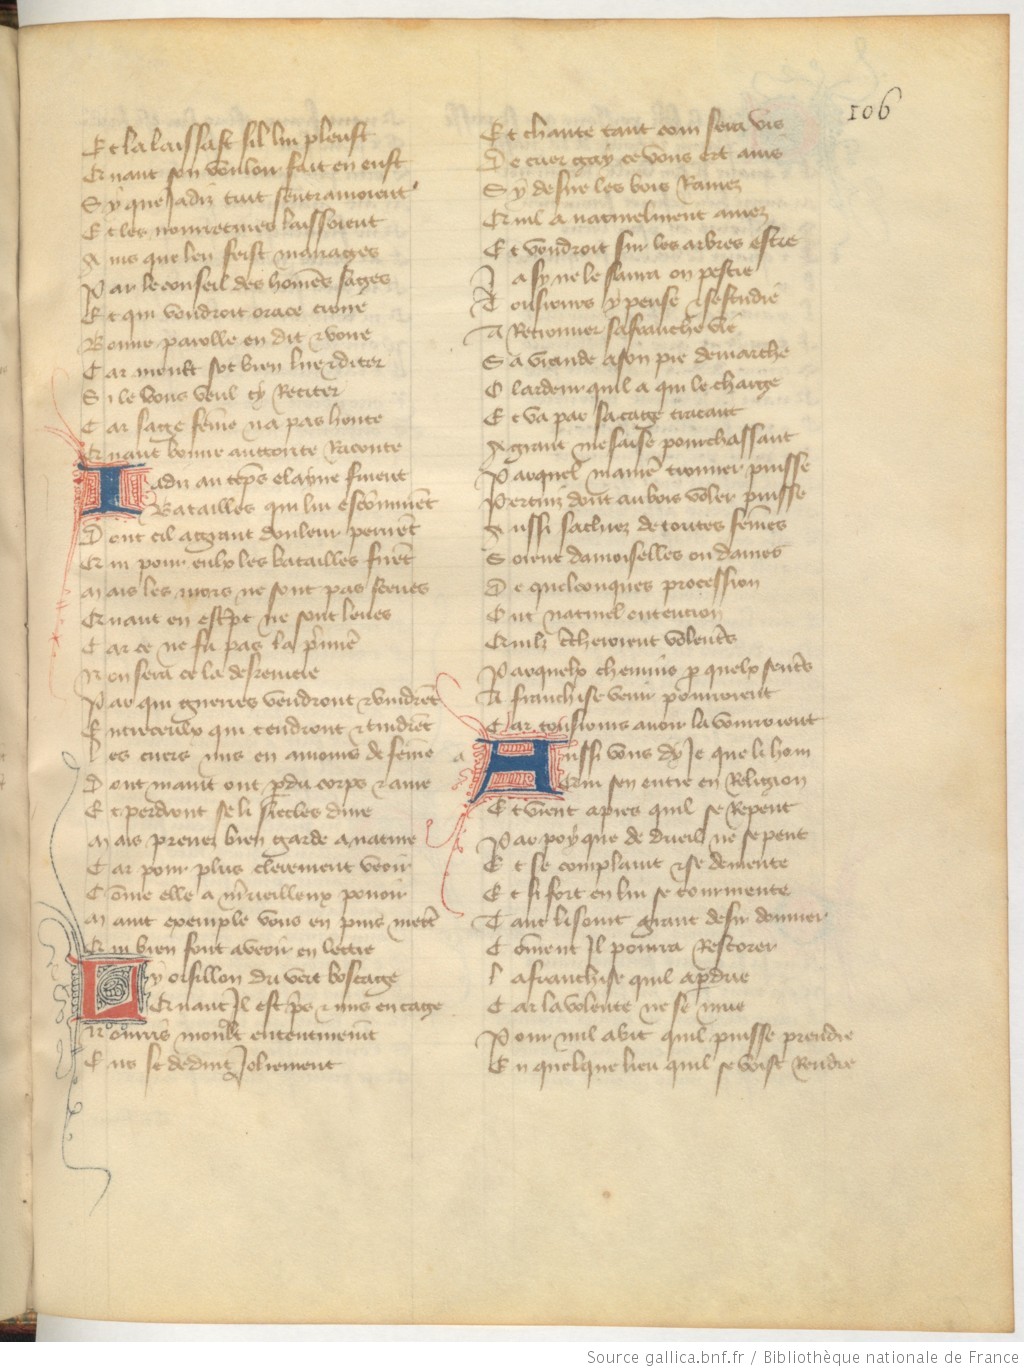 106
Et la laissast sil lui pleust
Quant son vouloir fait en eust
Sy que Jadiz tuit sentramoient
Et les nourretures laissoient
Ains que len feist mariages
Par le conseil des homes sages
Et qui vouldroit orace croire
Bonne parolle en dit et voire
Car moult sot bien lire et diter
Si le vous veul cy Reciter
Car sage feme na pas honte
Quant bonne auctorite Raconte
Jadiz au teps elayne furent
Batailles qui lui
Dont cil a grant douleur perirent
Qui pour eulx les batailles firent
Mais les mors ne sont pas sceues
Quant en escript ne sont leues
Car ce ne fu pas la premiere
Non sera ce la desreniere
Par qui guerres vendront et vindrent
Entre ceulx qui tendront et tindrent
Les cuers mis en amours de feme
Dont maint ont perdu corps et ame
Et perdront se li siecles dure
Mais prenez bien garde a nature
Car pour plus clerement veoir
Come elle a merveilleux pouoir
Maint exemple vous en puis mettre
Qui bien font a veoir en lettre
Ly oisillon du vert boscage
Quant Il est pris et mis en cage
Nourris moult ententiument
Leens et deduit Joliement
Et chante tant com sera vis
De cuer gay ce vous est auis
Sy desire les bois Ramez
Quil a naturelment amez
Et vouldroit sur les arbres estre
Ja sy ne le saura on pestre
Tousiours y pense et sestudie
A Recouurer sa franche vie
Sa viande a son pie demarche
O lardeur quil a qui le charge
Et va par sa cage tracant
A grant mesaise pourchassant
Par quel maniere trouuer puisse
Pertuiz dont au bois voler puisse
Aussi sachiez de toutes femes
Soient damoiselles ou dames
De quelconques procession
Ont naturel entencion
Quilz cercheroient voulentiers
Par quelx chemins par quelx sentiers
A franchise venir pourroient
Car tousiours auoir la vourroient
a Aussi vous dy Je que li hom
Qui sen entre en Religion
Et vient apres quil se Repent
Par poy que de dueil ne se pent
Et se complaint et se demente
Et si fort en lui se tourmente
Tant li sourt grant desir douurer
Coment Il pourra Restorer
La franchise quil a perdue
Car la volente ne se mue
Pour nul abit quil puisse prendre
En quelque lieu quil se voist Rendre
Source gallica.bnf.fr / Bibliothèque nationale de France